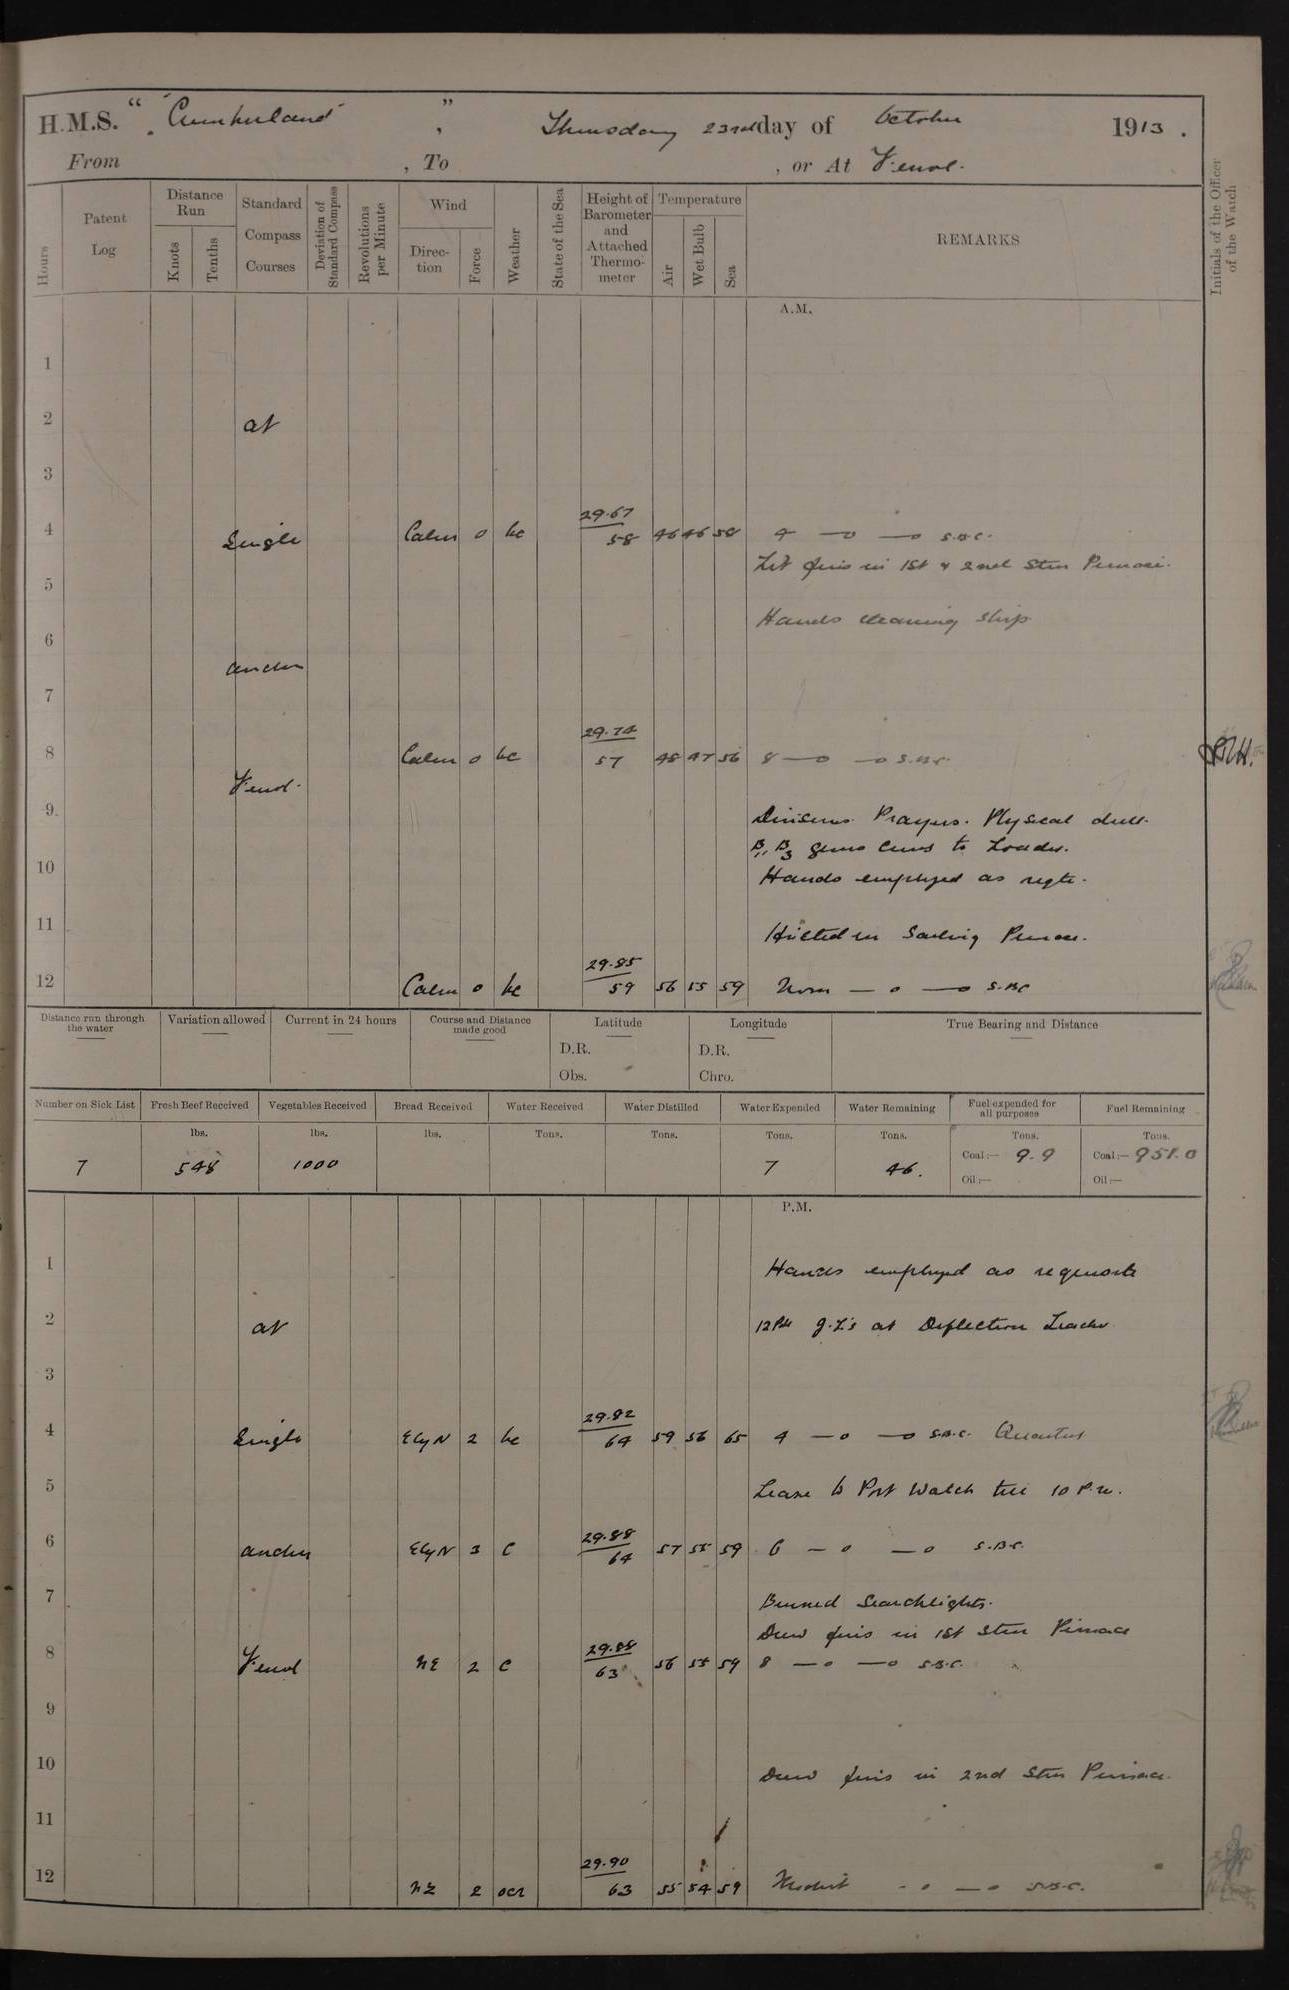 H.M.S. " Cumberland " , Thursday 23rd day of October 1913 .
From , To , or At Ferrol.
Hours
Patent Log
Distance Run
Knots
Tenths
Standard Compass Courses
Deviation of Standard Compass
Revolutions per Minute
Wind
Direction
Force
Weather
State of the Sea
Height of Barometer and Attached Thermometer
Temperature
Air
Wet Bulb
Sea
REMARKS
Initials of the Officer of the Watch
A.M.
1
2 at
3
4 Single Calm 0 bc 29.67 58 46 46 58 4 — o — o S.B.C.
Lit fires in 1st & 2nd Stm Pinnace.
5
Hands cleaning ship
6
anchor
7
8 Calm 0 bc 29.74 57 48 47 56 8 — o — o S.B.C.
Ferrol.
9 Divisions. Prayers. Physical drill.
guns crews to Loader.
10 Hands employed as reqte.
11 Hoisted in Sailing Pinnace.
12 Calm 0 bc 29.85 59 56 55 59 Noon — o — o S.B.C
Distance run through the water
Variation allowed
Current in 24 hours
Course and Distance made good
Latitude
D.R.
Obs.
Longitude
D.R.
Chro.
True Bearing and Distance
Number on Sick List
Fresh Beef Received
Vegetables Received
Bread Received
Water Received
Water Distilled
Water Expended
Water Remaining
Fuel expended for all purposes
Fuel Remaining
lbs. lbs. lbs. Tons. Tons. Tons. Tons. Tons. Tons.
7 548 1000 7 46. Coal:— 9.9 Coal:— 951.0
Oil:— Oil:—
P.M.
1 Hands employed as requisite
2 at
G.L's at Deflection Teacher
3
4 Single EbyN 2 bc 29.82 64 59 56 65 4 — o — o S.B.C. Quarters
5 Leave to Port Watch till 10 P.M.
6 anchor EbyN 3 c 29.88 64 57 55 59 6 — o — o S.B.C.
7 Burned Searchlights.
Drew fires in 1st Stm Pinnace
8 Ferrol NE 2 c 29.88 63 56 55 59 8 — o — o S.B.C.
9
10 Drew fires in 2nd Stm Pinnace.
11
12 NE 2 ocr 29.90 63 55 54 59 Midnt - o — o S.B.C.